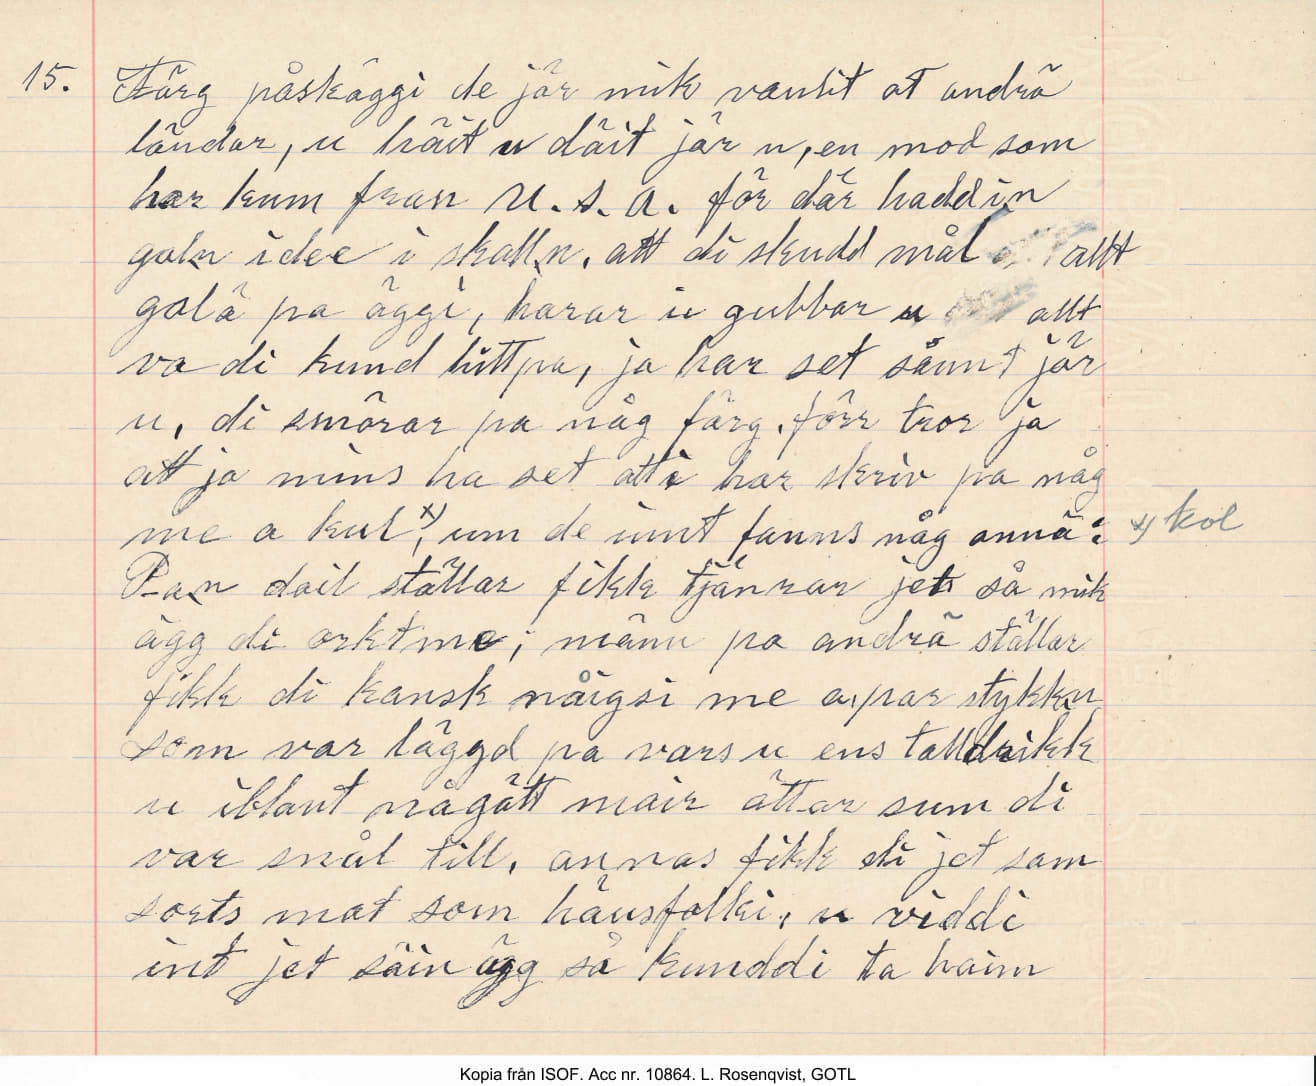 15. Färg påskäggi de jär mik vanlit at andrä
ländar, u häit u däit jär u, en mod som
har kum fran U.S.A. för där haddin
galn idee i skalln, att di skudd mål allt
galä pa äggi, harar u gubbar u allt
va di kund hittpa, ja har set såunt jär
u, di smörar pa någ färg, förr tror ja
att ja mins ha set atti har skriv pa någ
me a kul x), um de innt fanns någ annä i
x) kol
Pan dail ställar fikk tjänrar jet så mik
ägg di orktme, männ pa andrä ställar
fikk di kansk nåigsi me a par stykkn
som var läggd pa vars u ens talldrikk
u iblant någätt mair ättar sum di
var snål till, annas fikk di jet sam
sorts mat som häusfolki, u viddi
int jet säin ägg så kunddi ta haim
Kopia från ISOF. Acc nr. 10864. L. Rosenqvist, GOTL